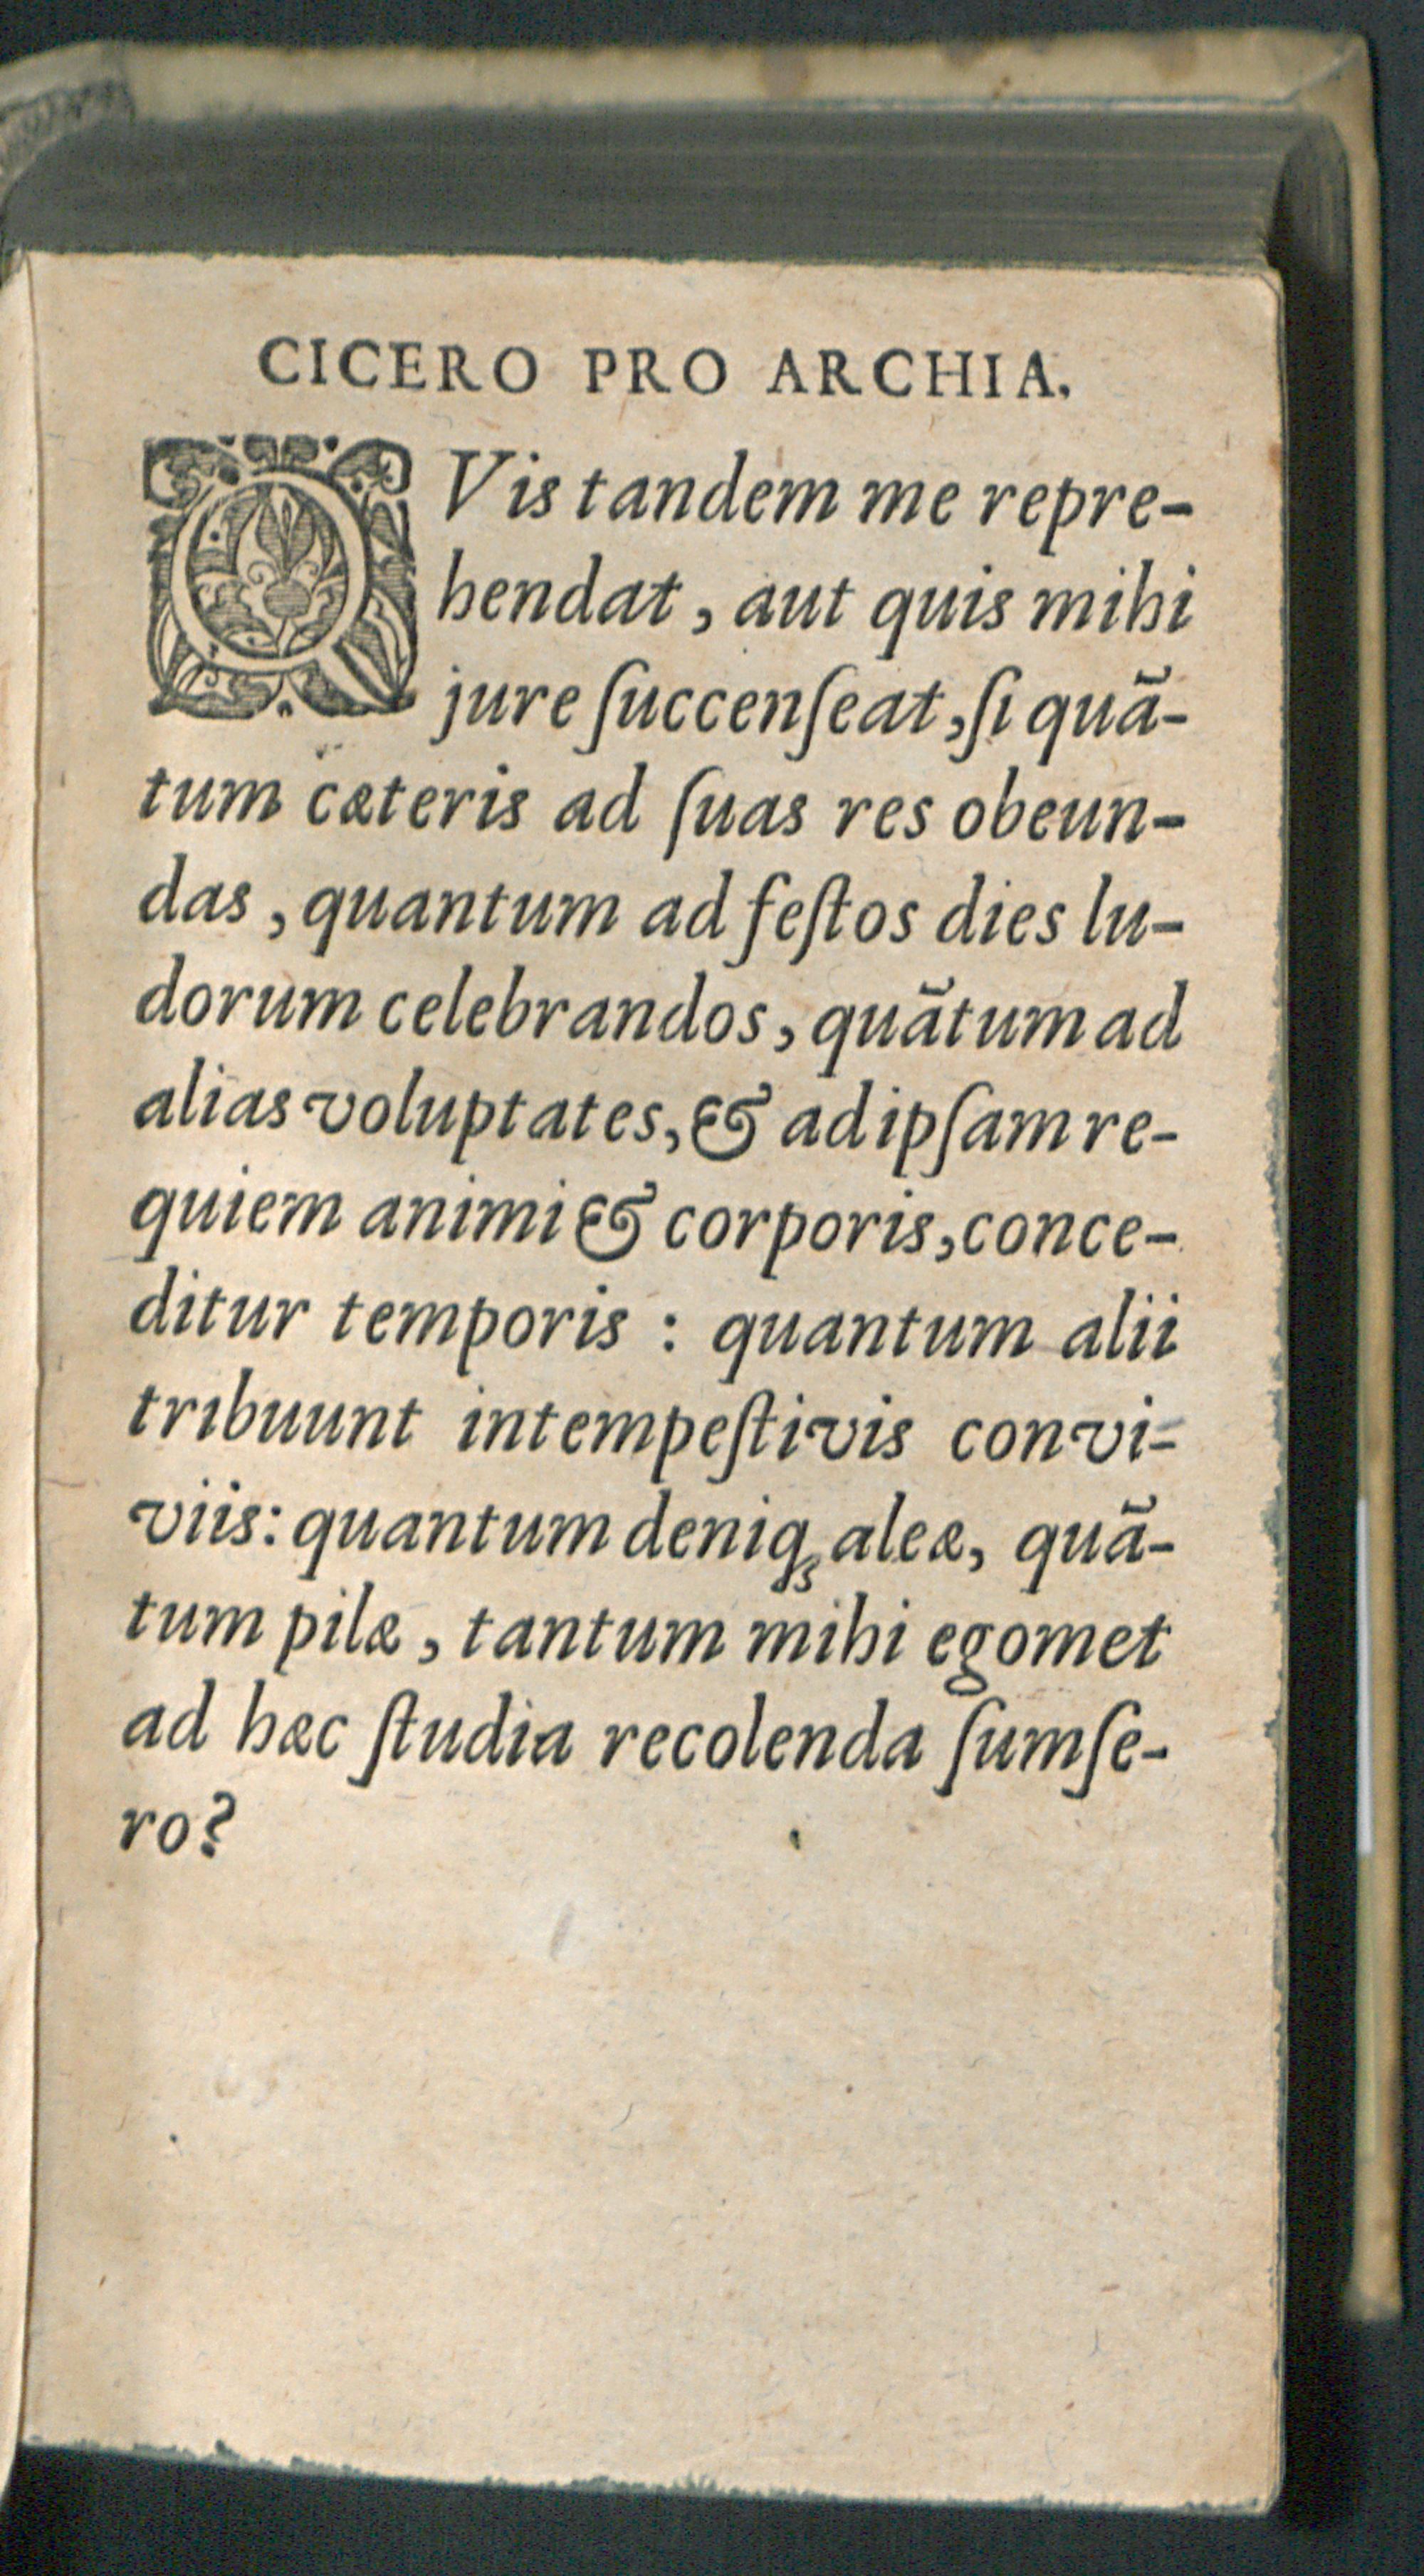 CICERO PRO ARCHIA.
QVis tandem me repre-
hendat, aut quis mihi
jure ſuccenſeat, ſi quã-
tum cæteris ad ſuas res obeun-
das, quantum ad feſtos dies lu-
dorum celebrandos, quãtum ad
alias voluptates, & ad ipſam re-
quiem animi & corporis, conce-
ditur temporis : quantum alii
tribuunt intempeſtivis convi-
viis: quantum deniqꝫ aleæ, quã-
tum pilæ, tantum mihi egomet
ad hæc ſtudia recolenda ſumſe-
ro?